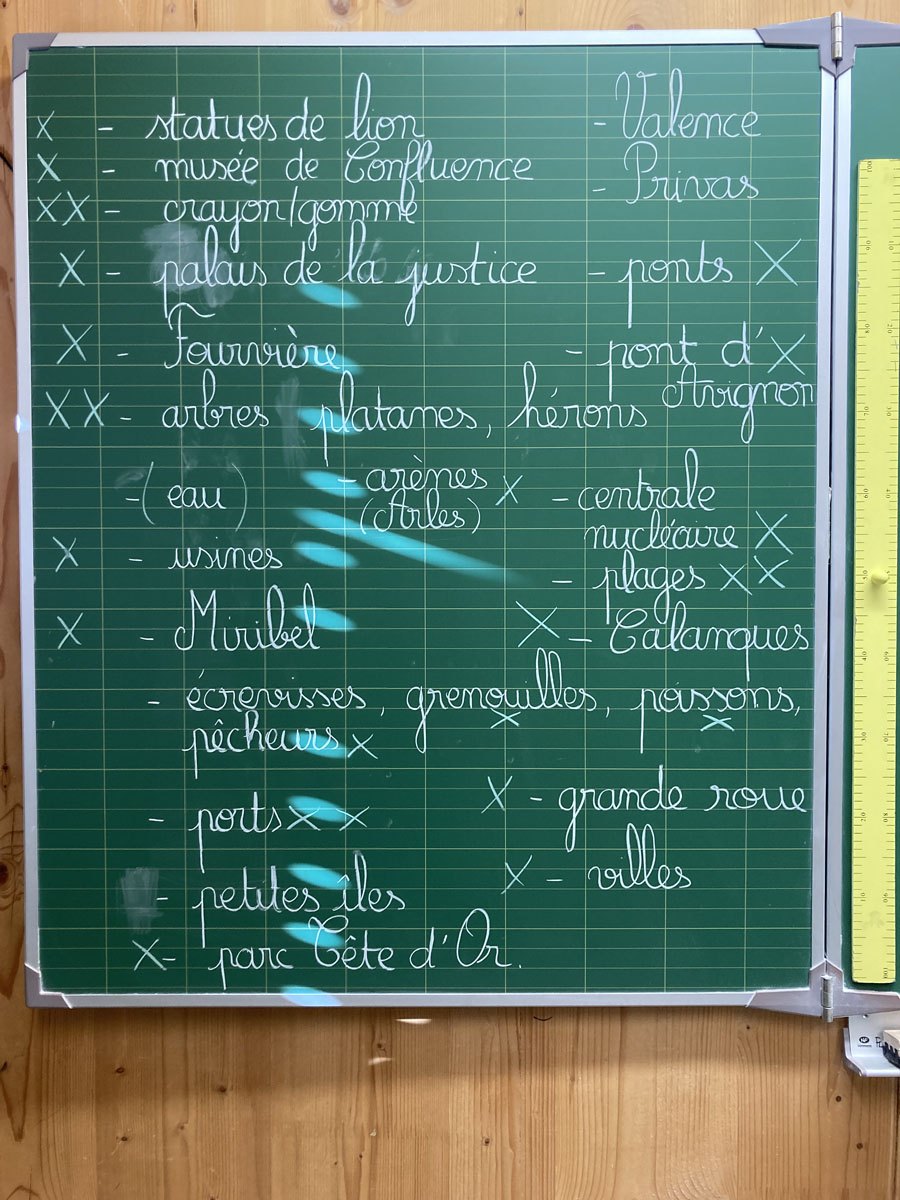 X - statues de lion
X - musée de Confluence
XX - crayon/gomme
X - palais de la justice
X - Fourvière
XX - arbres platanes, hérons
- (eau)
- arènes X
(Arles)
X - usines
X - Miribel
- écrevisses, grenouilles, poissons,
X X
pêcheurs X
- ports X X
- petites îles
X - parc Tête d'Or.
- Valence
- Privas
- ponts X
- pont d' X
Avignon
- centrale
nucléaire X
- plages X X
X - Calanques
X - grande roue
X - villes